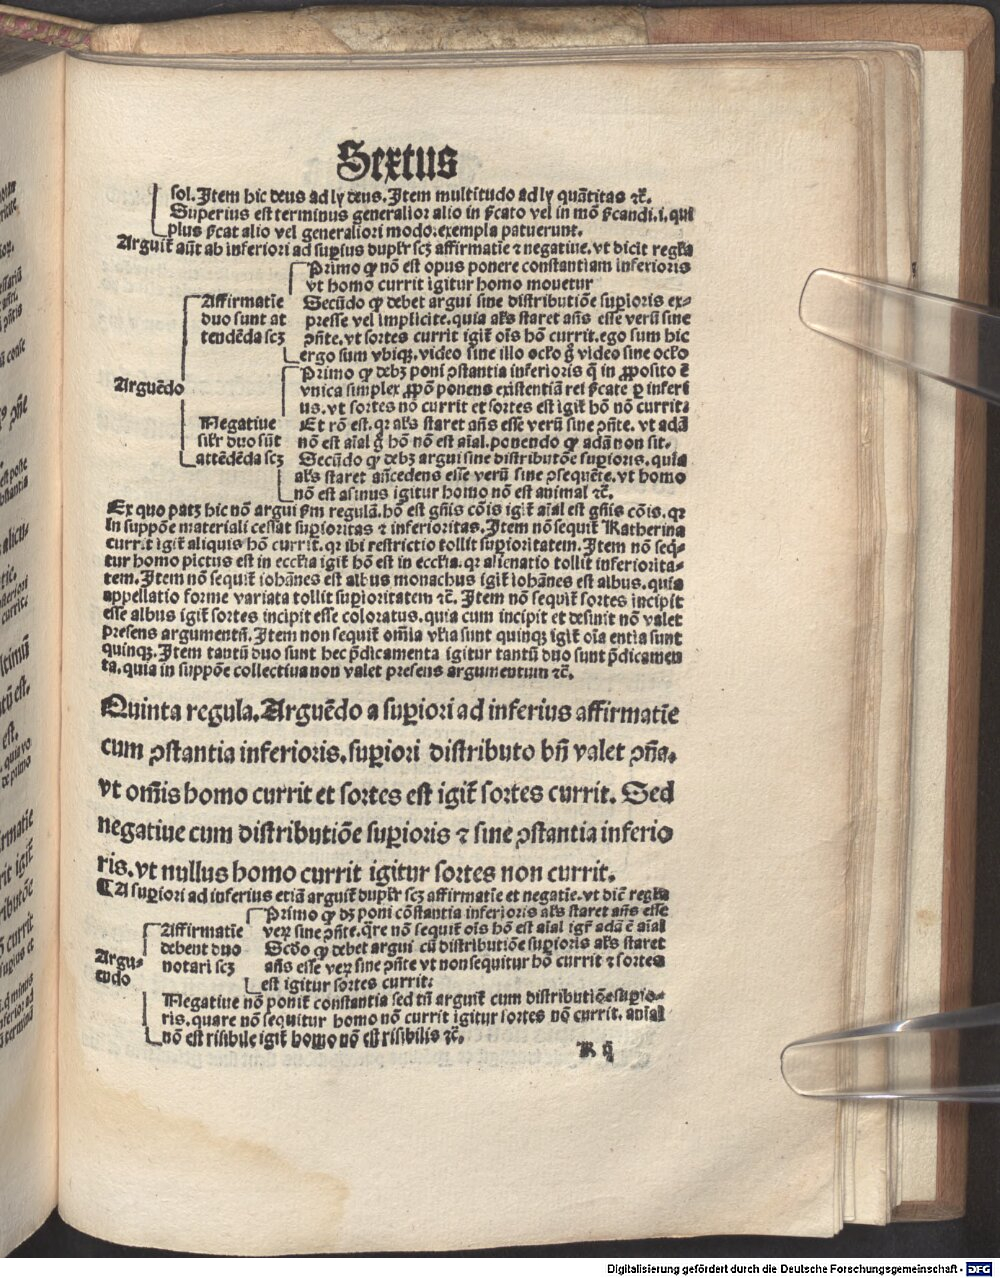 Sextus
sol. Item hic deus ad ly deus. Item multitudo ad ly quātitas ⁊c̄.
Superius est terminus generalior alio in ꝓcato vel in mō ꝓcandi. i. qui
plus ꝓcat alio vel generaliori modo. exempla patuerunt.
Arguit̄ aūt ab inferiori ad suꝑius duplr̄ scꝫ affirmatīe ⁊ negatiue. vt dicit regl̄a
Arguēdo
Affirmatīe
duo sunt at
tendēda scꝫ
Primo ꝙ nō est opus ponere constantiam inferioris
vt homo currit igitur homo mouetur
Secūdo ꝙ debet argui sine distributiōe suꝑioris ex⸗
presse vel implicite. quia al̄s staret an̄s esse verū sine
ꝓn̄te. vt sortes currit igit̄ oīs hō currit. ego sum hic
ergo sum vbiqꝫ. video sine illo oclō g̊ video sine oclō
Negatiue
sil̄r duo sūt
attēdēda scꝫ
Primo ꝙ debꝫ poni ꝯstantia inferioris q̄ in ꝓposito ē
vnica simplex ꝓpō ponens existentiā rei ꝓcate ꝑ inferi
us. vt sortes nō currit et sortes est igit̄ hō nō currit.
Et rō est. qꝛ al̄s staret an̄s esse verū sine ꝓn̄te. vt adā
nō est aīal g̊ hō nō est aīal. ponendo ꝙ adā non sit.
Secūdo ꝙ debꝫ argui sine distributōe suꝑioris. quia
al̄s staret an̄cedens esse verū sine ꝯsequēte. vt homo
nō est asinus igitur homo nō est animal ⁊c̄.
Ex quo patꝫ hic nō argui ꝓm regulā. hō est gn̄is cōis igit̄ aīal est gn̄is cōis. qꝛ
in suppōe materiali cessat suꝑioritas ⁊ inferioritas. Item nō sequit̄ Katherina
currit igit̄ aliquis hō currit. qꝛ ibi restrictio tollit suꝑioritatem. Item nō seq⸗
tur homo pictus est in ecclīa igit̄ hō est in ecclīa. qꝛ alienatio tollit inferiorita⸗
tem. Item nō sequit̄ iohānes est albus monachus igit̄ iohānes est albus. quia
appellatio forme variata tollit suꝑioritatem ⁊c̄. Item nō sequit̄ sortes incipit
esse albus igit̄ sortes incipit esse coloratus. quia cum incipit et desinit nō valet
presens argumentū. Item non sequit̄ om̄ia vl̄ia sunt quinqꝫ igit̄ oīa entia sunt
quinqꝫ. Item tantū duo sunt hec p̄dicamenta igitur tantū duo sunt p̄dicamen
ta. quia in suppōe collectiua non valet presens argumentum ⁊c̄.
Quinta regula. Arguēdo a suꝑiori ad inferius affirmatīe
cum ꝯstantia inferioris. suꝑiori distributo bn̄ valet ꝯn̄a.
vt om̄is homo currit et sortes est igit̄ sortes currit. Sed
negatiue cum distributiōe suꝑioris ⁊ sine ꝯstantia inferio
ris. vt nullus homo currit igitur sortes non currit.
¶ A suꝑiori ad inferius etiā arguit̄ duplr̄ scꝫ affirmatīe et negatīe. vt dic̄ regl̄a
Argu⸗
endo
Affirmatīe
debent duo
notari scꝫ
Primo ꝙ dꝫ poni cōstantia inferioris al̄s staret an̄s esse
veꝝ sine ꝓn̄te. q̄re nō sequit̄ oīs hō est aīal igit̄ adā ē aīal
Scd̄o ꝙ debet argui cū distributiōe suꝑioris al̄s staret
an̄s esse veꝝ sine ꝓn̄te vt non sequitur hō currit ⁊ sortes
est igitur sortes currit.
Negatiue nō ponit̄ constantia sed tn̄ arguit̄ cum distributiōe suꝑio⸗
ris. quare nō sequitur homo nō currit igitur sortes nō currit. animal
nō est risibile igit̄ homo nō est risibilis ⁊c̄.
Digitalisierung gefördert durch die Deutsche Forschungsgemeinschaft - DFG